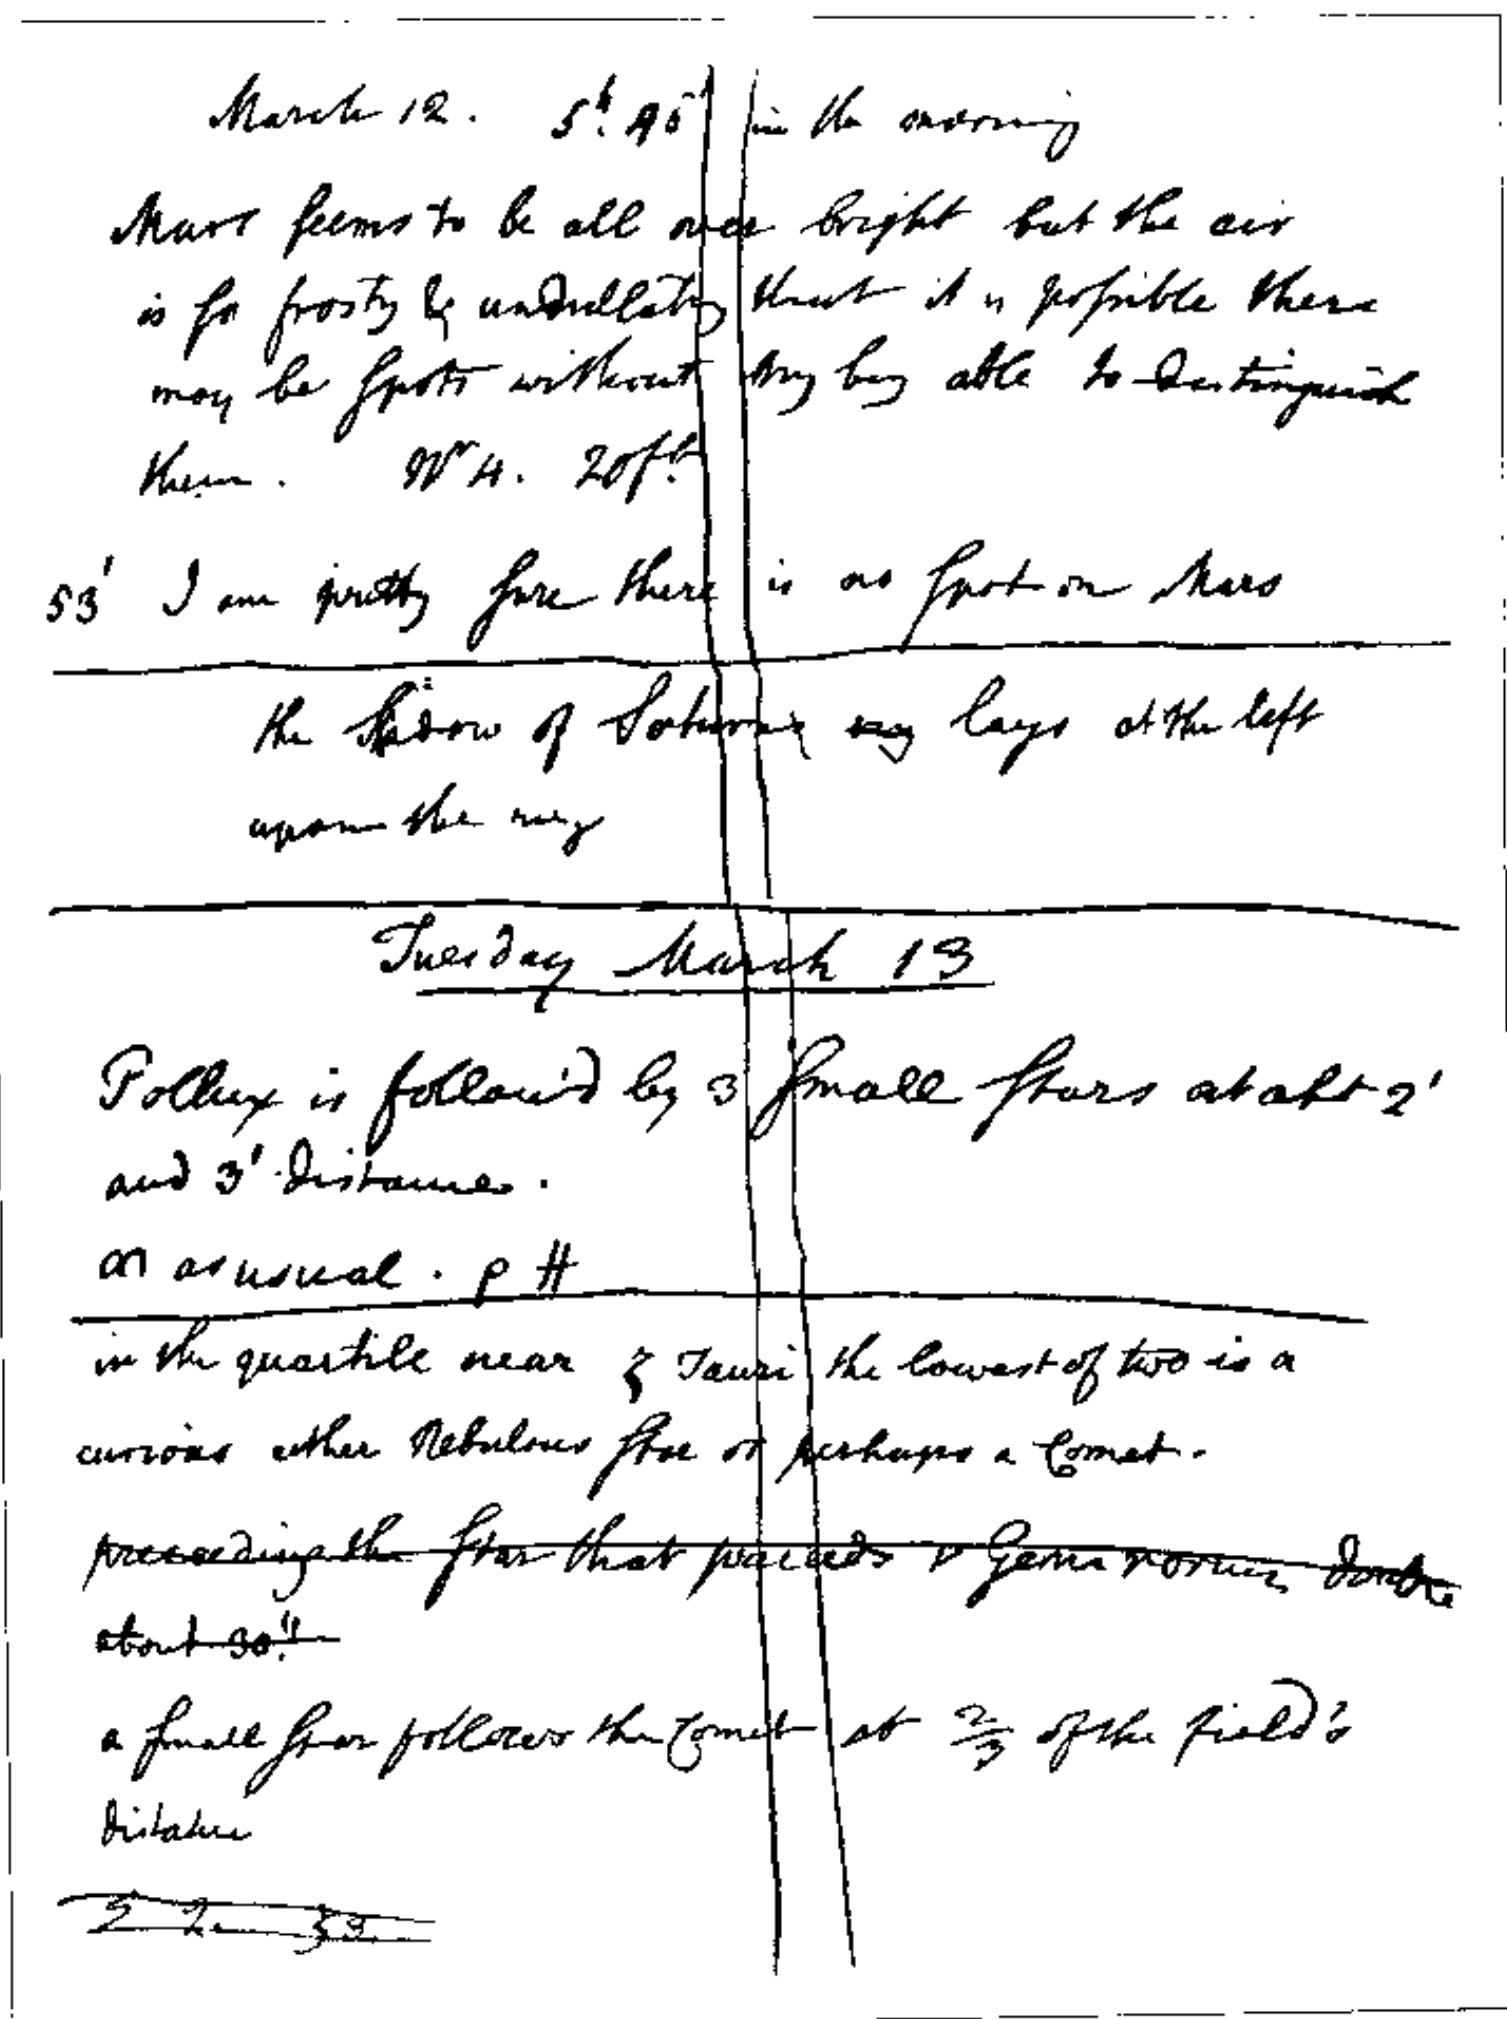 March 12. 5h. 45' in the morning
Mars seems to be all over bright but the air
is so frosty & undullating that it is possible there
may be spots without my being able to distinguish
them. 20ft.
53' I am pretty sure there is no spot on Mars
the Shadow of Saturn lays at the left
upon the ring
Tuesday March 13
Pollux is follow'd by 3 small stars at abt 2'
and 3' distance.
as usual. p #
in the quartile near ζ Tauri the lowest of two is a
curious either Nebulous star or perhaps a Comet.
preceeding the star that precedes Geminorum double
about 30"
a small star follows the Comet at 2/3 of the field's
distance